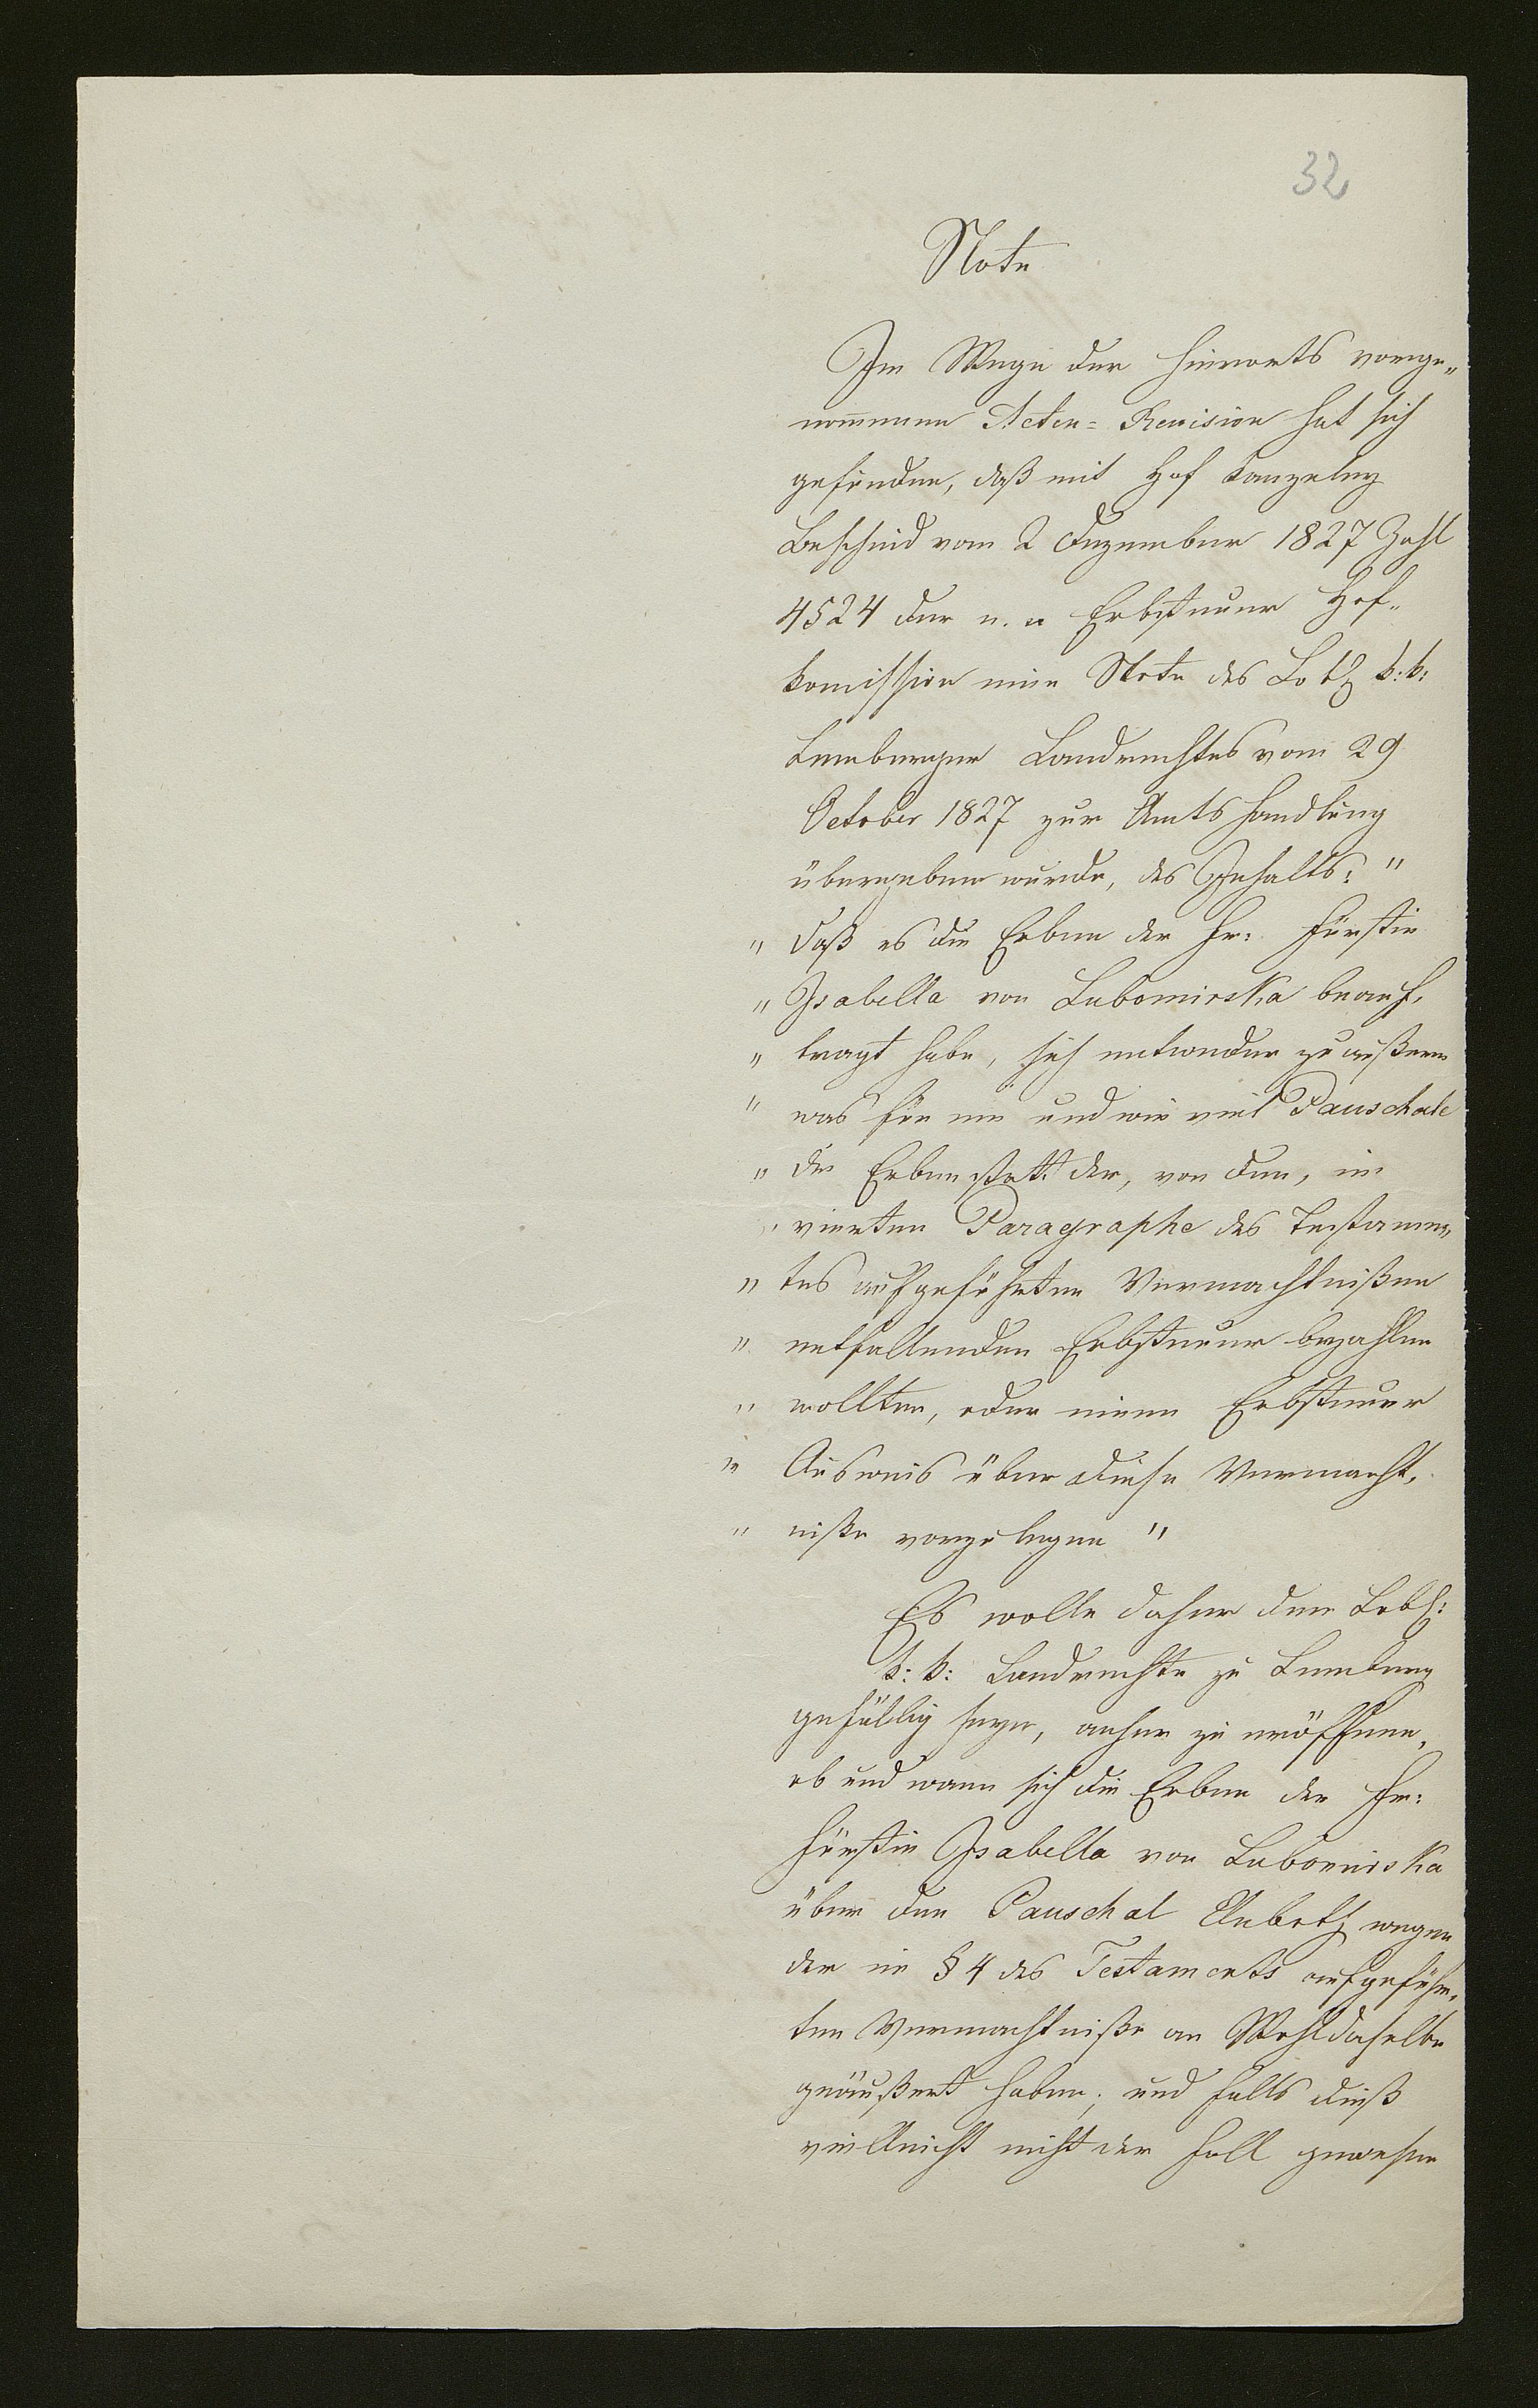 32
Note
Im Wege der hierorts vorge„
nom̄enen Acten= Revision hat sich
gefunden, daß mit Hof Kanzeley
Bescheid vom 2 Dezember 1827 Zahl
4524 der n. ö Erbsteuer Hof„
komission eine Note des Lobl k: k:
Lemberger Landrechtes vom 29
October 1827 zur Amtshandlung
übergeben wurde, des Inhalts: "
" daß es die Erben der Fr: Fürstin
" Isabella von Lubomirska beauf„
" tragt habe, sich entweder zu äußern
" was für ein und wie viel Pauschale
" die Erben statt der, von den, im
" vierten Paragraphe des Testamen„
" tes aufgeführten Vermächtnißen
" entfallenden Erbsteuer bezahlen
" wollten, oder einen Erbsteuer
" Ausweis über diese Vermächt„
" niße vorzulegen "
Es wolle daher dem Lobl:
k: k: Landrechte zu Lemberg
gefällig seyn, anher zu eröffnen,
ob und wann sich die Erben der Fr:
Fürstin Isabella von Lubomirska
über den Pauschal Anboth wegen
der im § 4 des Testaments aufgeführ„
ten Vermächtniße an Wohldaselbe
geäußert haben, und falls dieß
vielleicht nicht der Fall gewesen